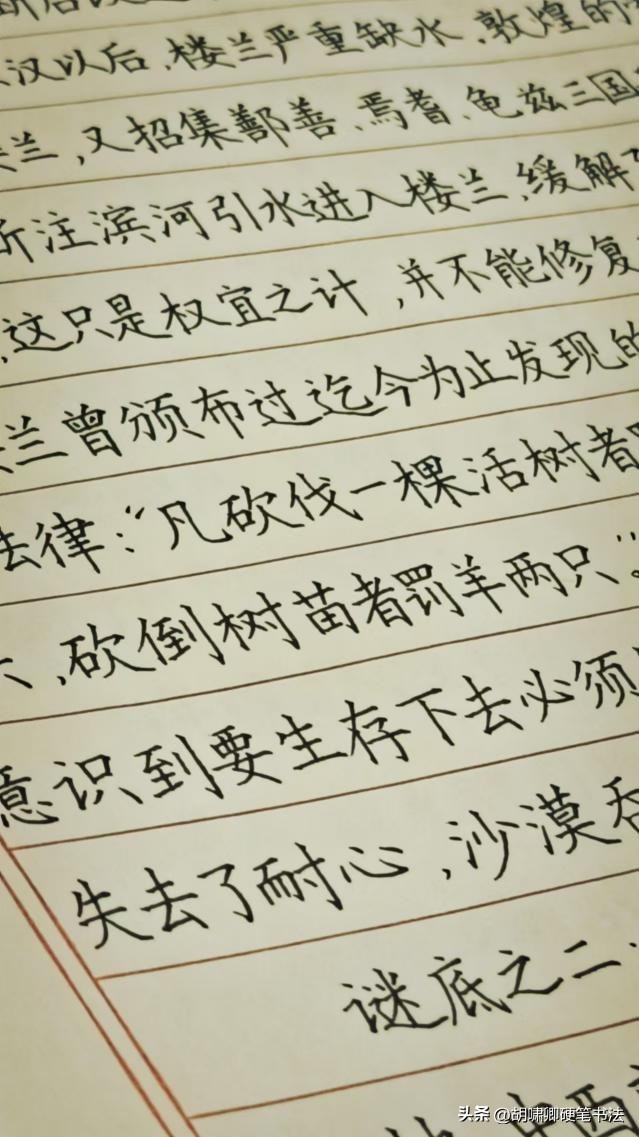 汉以后，楼兰严重缺水，敦煌的
兰，又招集鄯善、焉耆、龟兹三国
注滨河引水进入楼兰，缓解
，这只是权宜之计，并不能修复
兰曾颁布过迄今为止发现的
法律：“凡砍伐一棵活树者
，砍倒树苗者罚羊两只”。
意识到要生存下去必须
失去了耐心，沙漠吞
谜底之二
头条 @胡啸卿硬笔书法